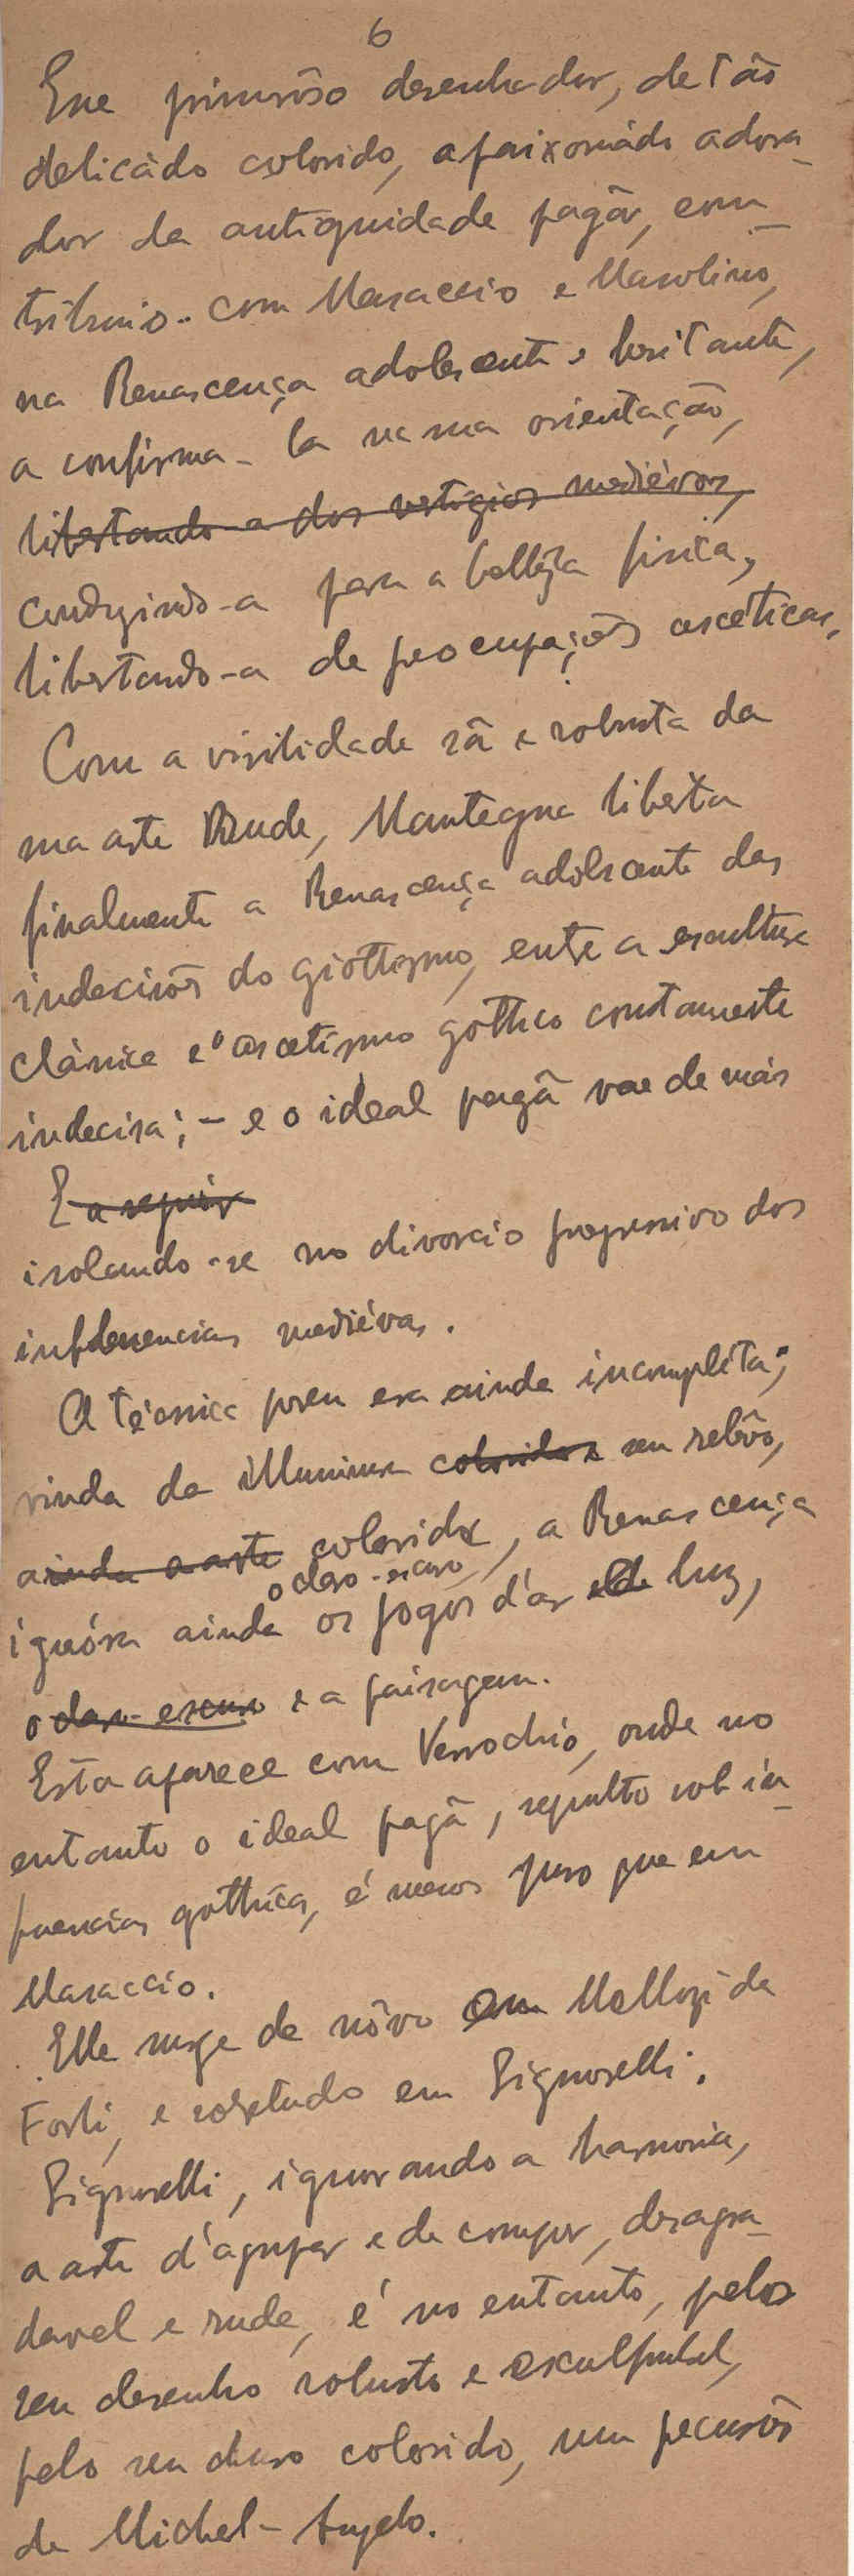 6
Esse primorôso desenhador, de tão
delicádo colorido, apaixonádo adora-
dor da antiguidade pagã, con-
tribuio - com Masaccio e Masolino,
na Renascença adolescente e hesitante,
a confirma-la na sua orientação,
libertando-a dos vestigios mediévos,
conduzindo-a para a bellêza fisica,
libertando-a de peocupações asceticas.
Com a virilidade sã e robusta da
sua arte Rude, Mantegna liberta
finalmente a Renascença adolscente das
indecisões do giottismo, entre a esculture
clássica e o ascetismo gothico constantemente
indecisa; - e o ideal pagã vae de mais
E a seguir
isolando-se no divorcio progressivo dos
influencias mediévas.
A técnica porem era ainda incomplêta;
vinda da illuminura colorida e sem relêvo,
ainda a arte colorida, a Renascença
o claro-escuro
ignóra ainda os jogos d'ar e de luz,
o claro-escuro e a paisagem.
Esta aparece com Verrochio, onde no
entanto o ideal pagã, sepulto sob in-
fluencias gothicas, é menos puro que em
Masaccio.
Elle surge de nôvo em Mellozi da
Forli, e sobretudo em Signorelli.
Signorelli, ignorando a harmonia,
a arte d'agrupar e de compor, desagra-
davel e rude, é no entanto, pelos
seu desenho robusto e esculptural,
pelo seu duro colorido, um pecursôr
de Michel-Angelo.